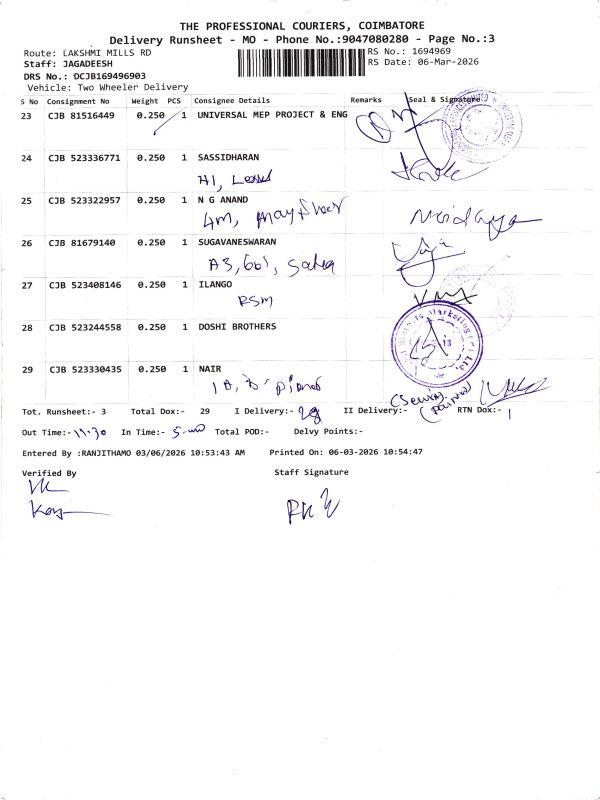 THE PROFESSIONAL COURIERS, COIMBATORE
Delivery Runsheet - MO - Phone No.:9047080280 - Page No.:3
Route: LAKSHMI MILLS RD
RS No.: 1694969
Staff: JAGADEESH
RS Date: 06-Mar-2026
DRS No.: DCJB169496903
Vehicle: Two Wheeler Delivery
S No Consignment No Weight PCS Consignee Details Remarks Seal & Signature
23 CJB 81516449 0.250 1 UNIVERSAL MEP PROJECT & ENG
24 CJB 523336771 0.250 1 SASSIDHARAN
25 CJB 523322957 0.250 1 N G ANAND
4m,
26 CJB 81679140 0.250 1 SUGAVANESWARAN
A3,
27 CJB 523408146 0.250 1 ILANGO
RSM
28 CJB 523244558 0.250 1 DOSHI BROTHERS
29 CJB 523330435 0.250 1 NAIR
Tot. Runsheet:- 3 Total Dox:- 29 I Delivery:- 28 II Delivery:- RTN Dox:- 1
Out Time:- 11.30 In Time:- Total POD:- Delvy Points:-
Entered By :RANJITHAMO 03/06/2026 10:53:43 AM Printed On: 06-03-2026 10:54:47
Verified By Staff Signature